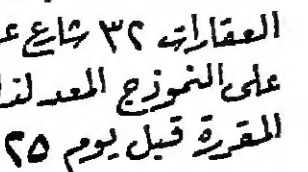 العقارات ٣٢ شارع ع
على النموذج المعد لذا
المقررة قبل يوم ٢٥